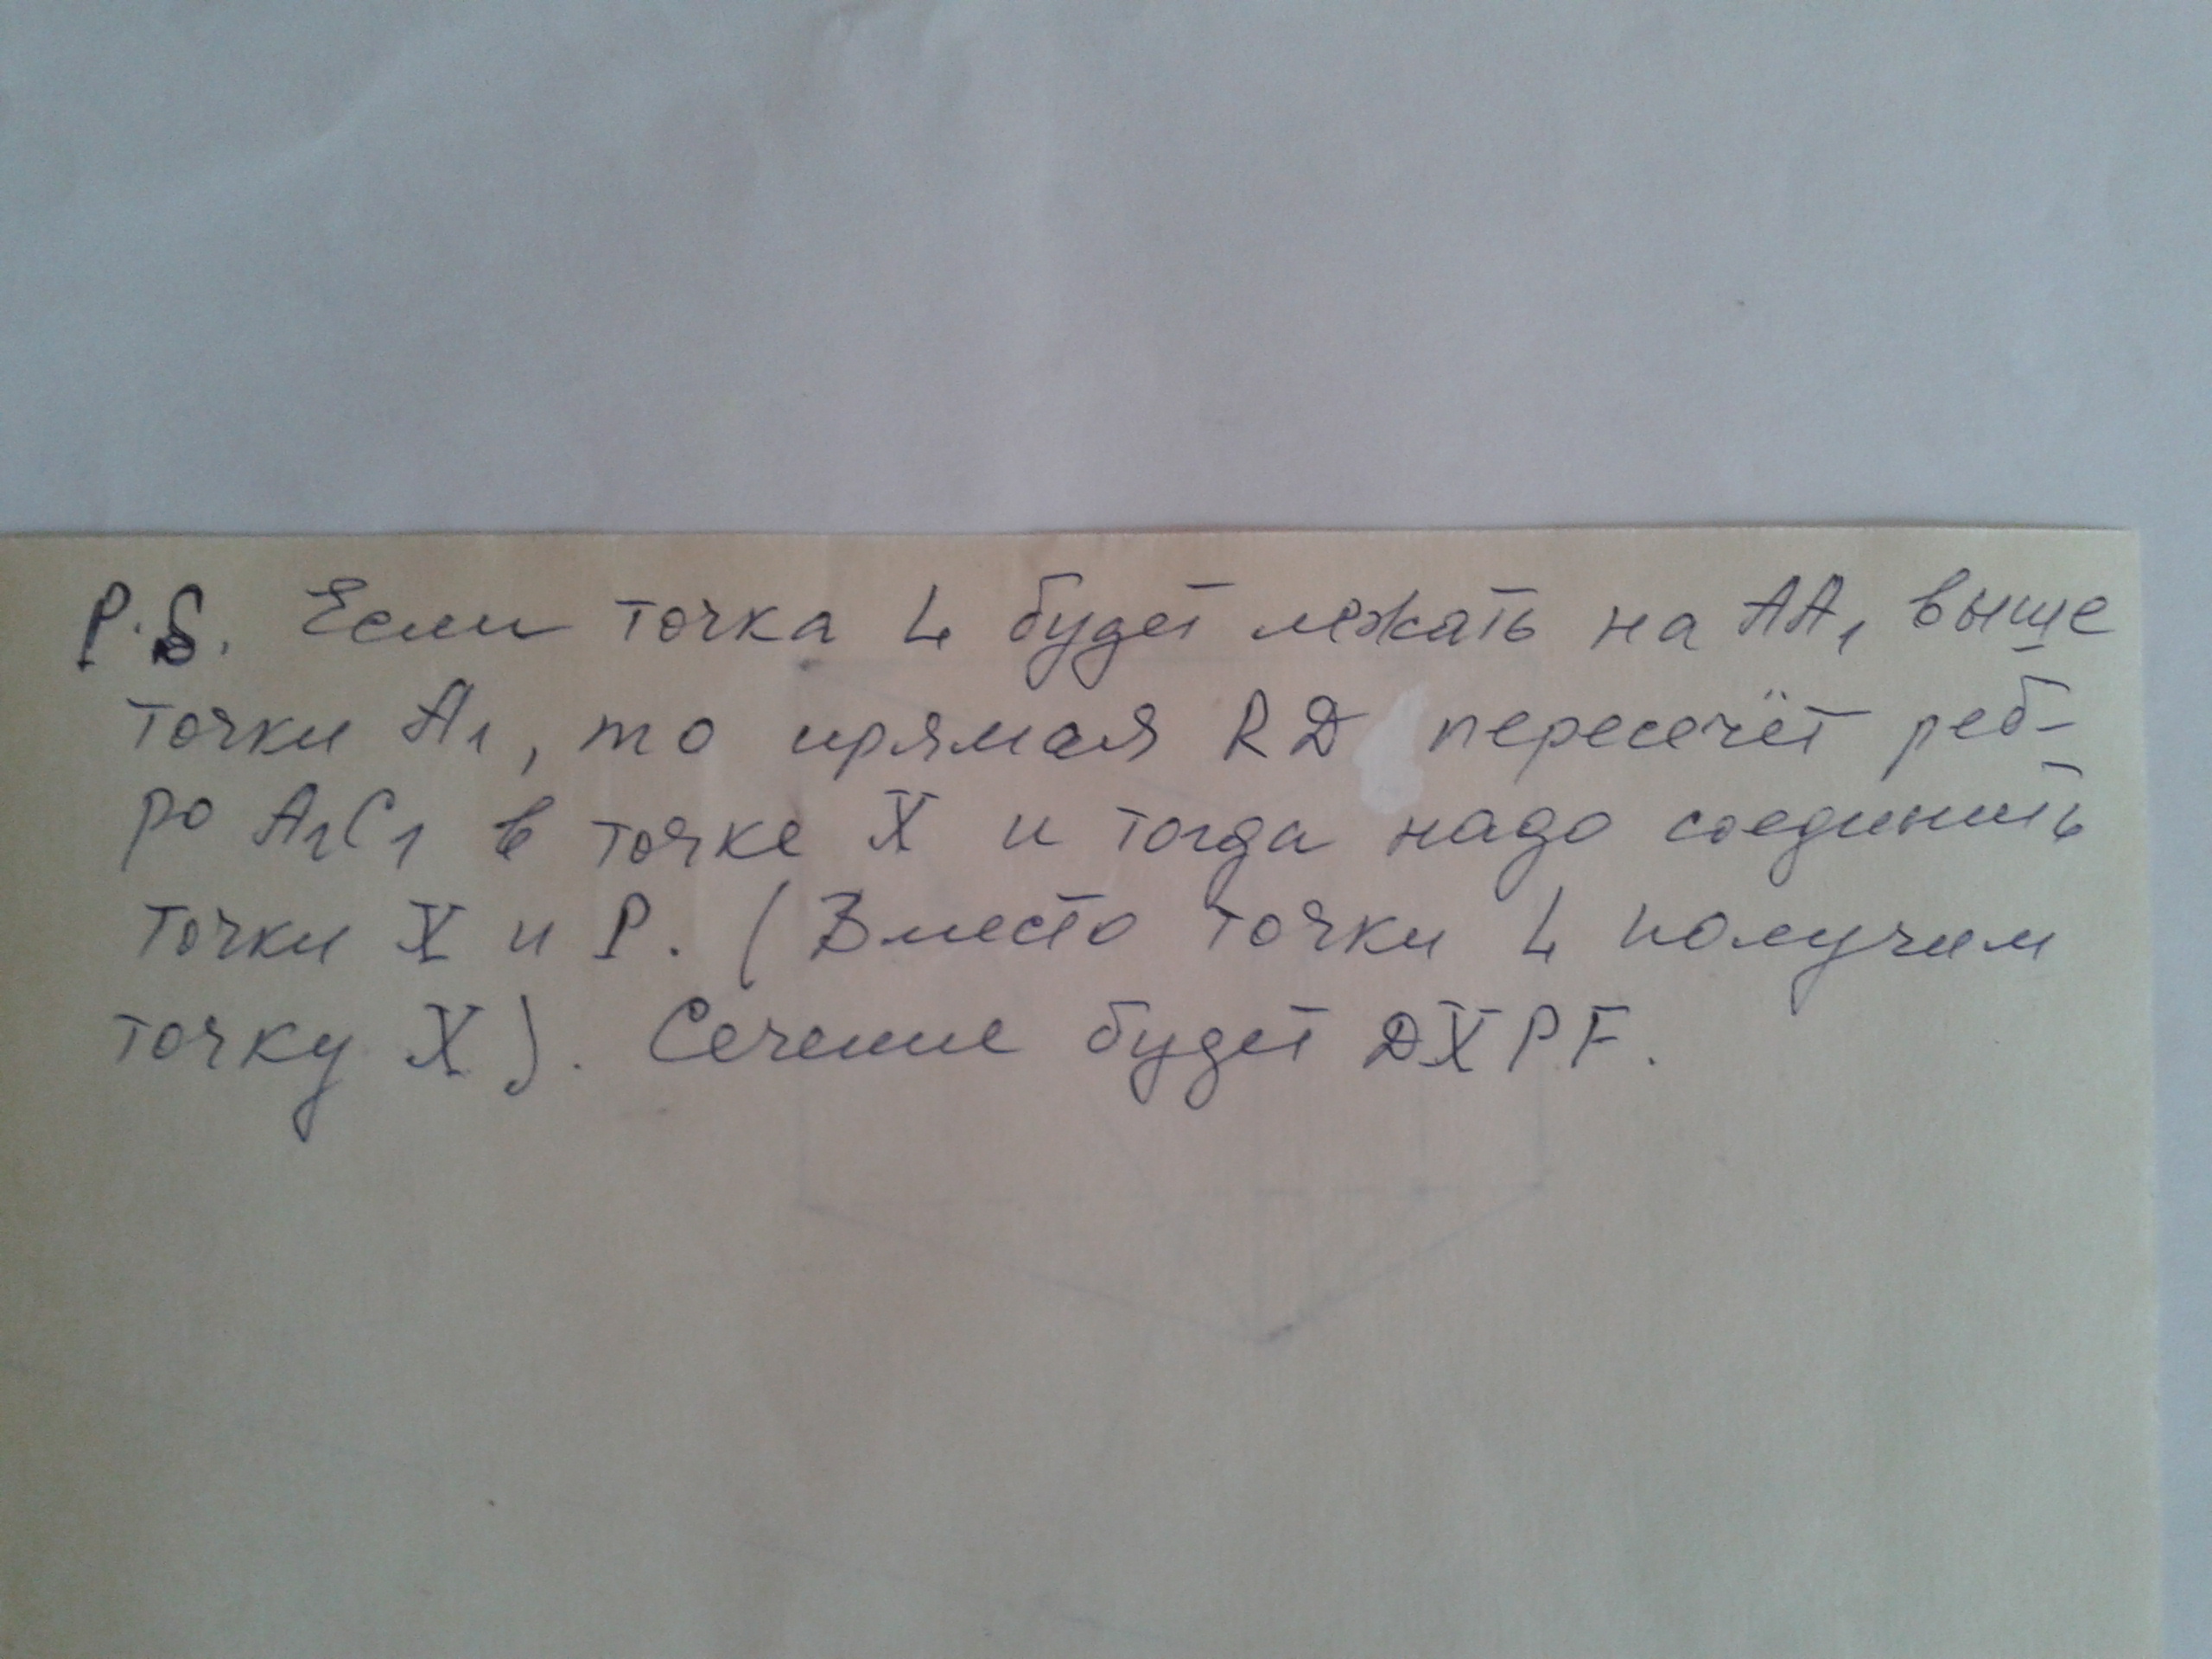 P.S. Если точка L будет лежать на AA₁ выше
точки A₁, то прямая RD пересечёт реб-
ро A₁C₁ в точке X и тогда надо соединить
точки X и P. (Вместо точки L получим
точку X). Сечение будет DXPF.